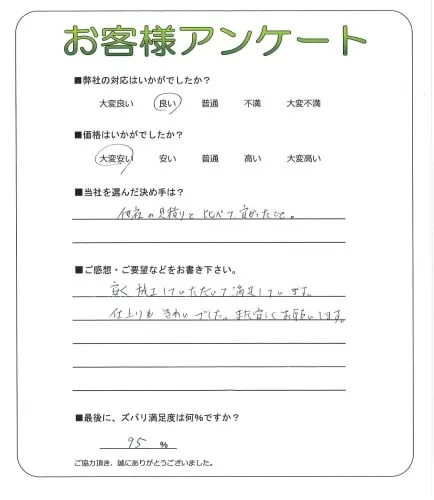 お客様アンケート
■弊社の対応はいかがでしたか？
大変良い 良い 普通 不満 大変不満
■価格はいかがでしたか？
大変安い 安い 普通 高い 大変高い
■当社を選んだ決め手は？
他社の見積りと比べて安かったこと。
■ご感想・ご要望などをお書き下さい。
安く施工していただいて満足しています。
仕上りもきれいでした。また宜しくお願いします。
■最後に、ズバリ満足度は何%ですか？
95 %
ご協力頂き、誠にありがとうございました。